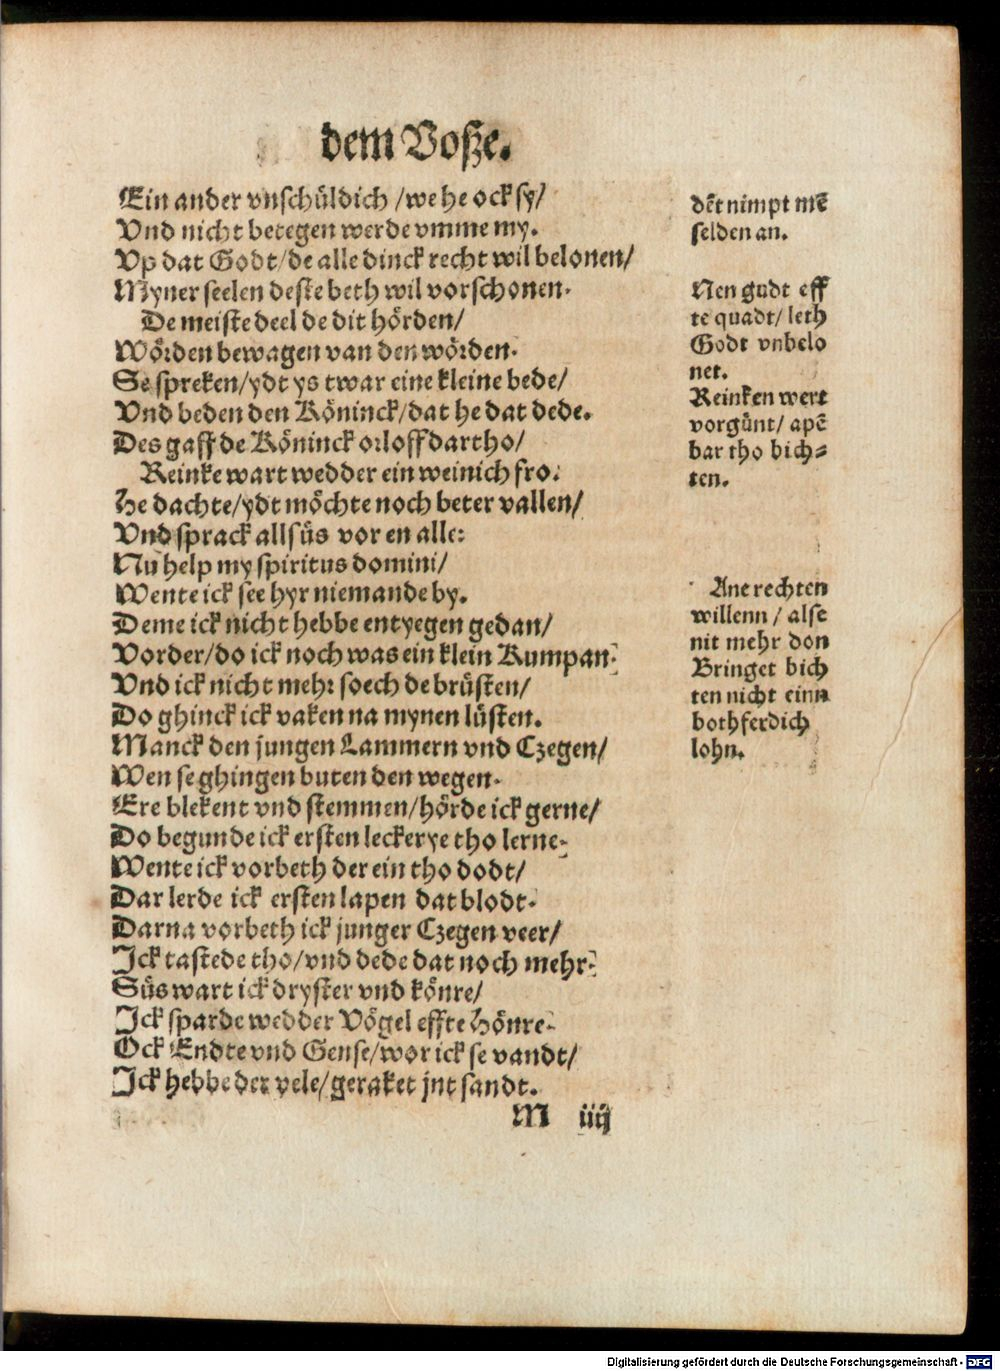 dem Voſze.
Ein ander vnſchüldich /we he ock ſy/
Vnd nicht betegen werde vmme my.
Vp dat Godt/de alle dinck recht wil belonen/
Myner ſeelen deſte beth wil vorſchonen.
De meiſte deel de dit hörden/
Wörden bewagen van den wörden.
Se ſpreken/ydt ys twar eine kleine bede/
Vnd beden den Köninck/dat he dat dede.
Des gaff de Köninck orloff dartho/
Reinke wart wedder ein weinich fro.
He dachte/ydt möchte noch beter vallen/
Vnd ſprack allſüs vor en alle:
Nu help my ſpiritus domini/
Wente ick ſee hyr niemande by.
Deme ick nicht hebbe entyegen gedan/
Vorder/do ick noch was ein klein Kumpan.
Vnd ick nicht mehr ſoech de brüſten/
Do ghinck ick vaken na mynen lüſten.
Manck den jungen Lammern vnd Czegen/
Wen ſe ghingen buten den wegen.
Ere blekent vnd ſtemmen/hörde ick gerne/
Do begunde ick erſten leckerye tho lerne.
Wente ick vorbeth der ein tho dodt/
Dar lerde ick erſten lapen dat blodt.
Darna vorbeth ick junger Czegen veer/
Ick taſtede tho/vnd dede dat noch mehr.
Süs wart ick dryſter vnd könre/
Ick ſparde wedder Vögel effte Hönre.
Ock Endte vnd Genſe/wor ick ſe vandt/
Ick hebbe der vele/geraket jnt ſandt.
M iiij
dēt nimpt mē
ſelden an.
Nen gudt eff
te quadt/ leth
Godt vnbelo
net.
Reinken wert
vorgünt/ apē
bar tho bich⸗
ten.
Ane rechten
willenn / alſe
nit mehr don
Bringet bich
ten nicht einn
bothferdich
lohn.
Digitalisierung gefördert durch die Deutsche Forschungsgemeinschaft - DFG